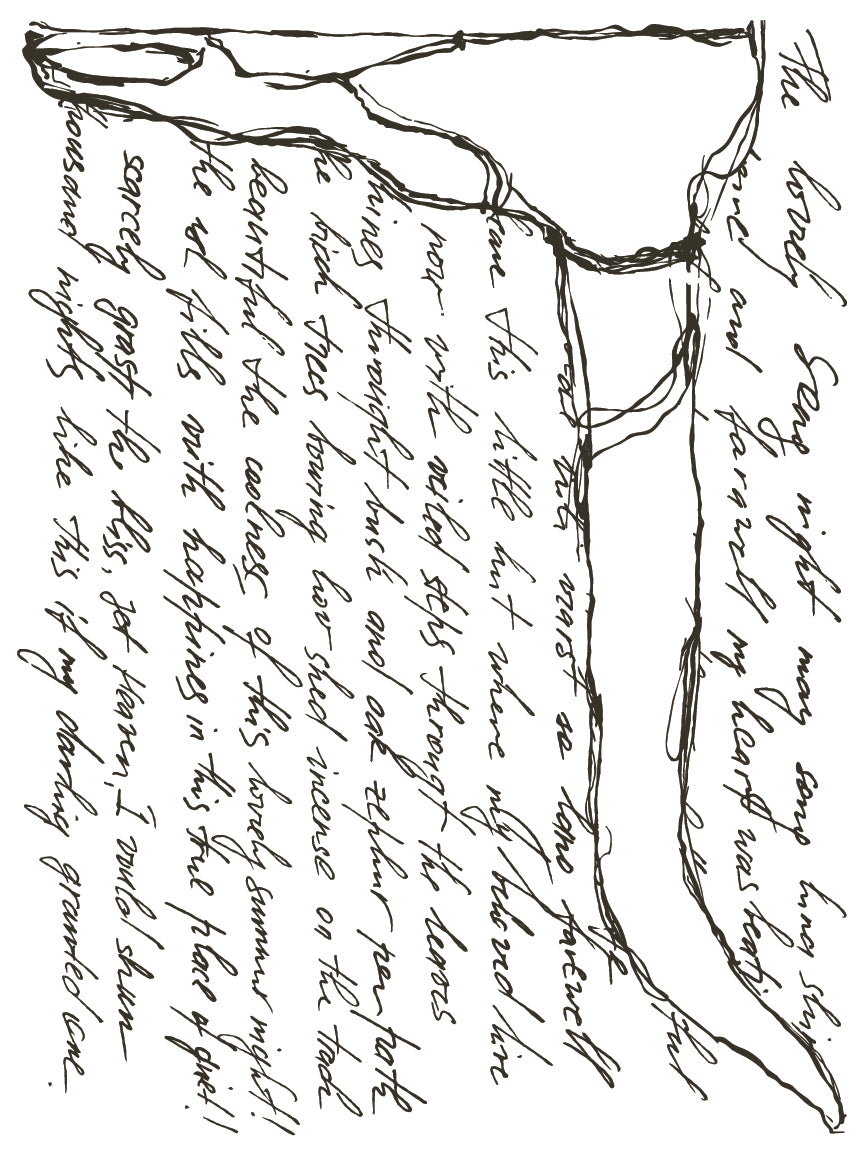 The lovely Song night may song luna shi
and farwell my heart was beati
that
hut so lons farewell
this little hut where my live
now with veiled steps through the leaves
hines throught bush and oak zephur per path
he trees bowing low shed incense on the track
beautiful the coolness of this lovely summer night!
the sol fills with happines in this true place of quiet!
scarcely grast the bliss, jet Heaven, I would shun
housand nights like this if my darling granted one.